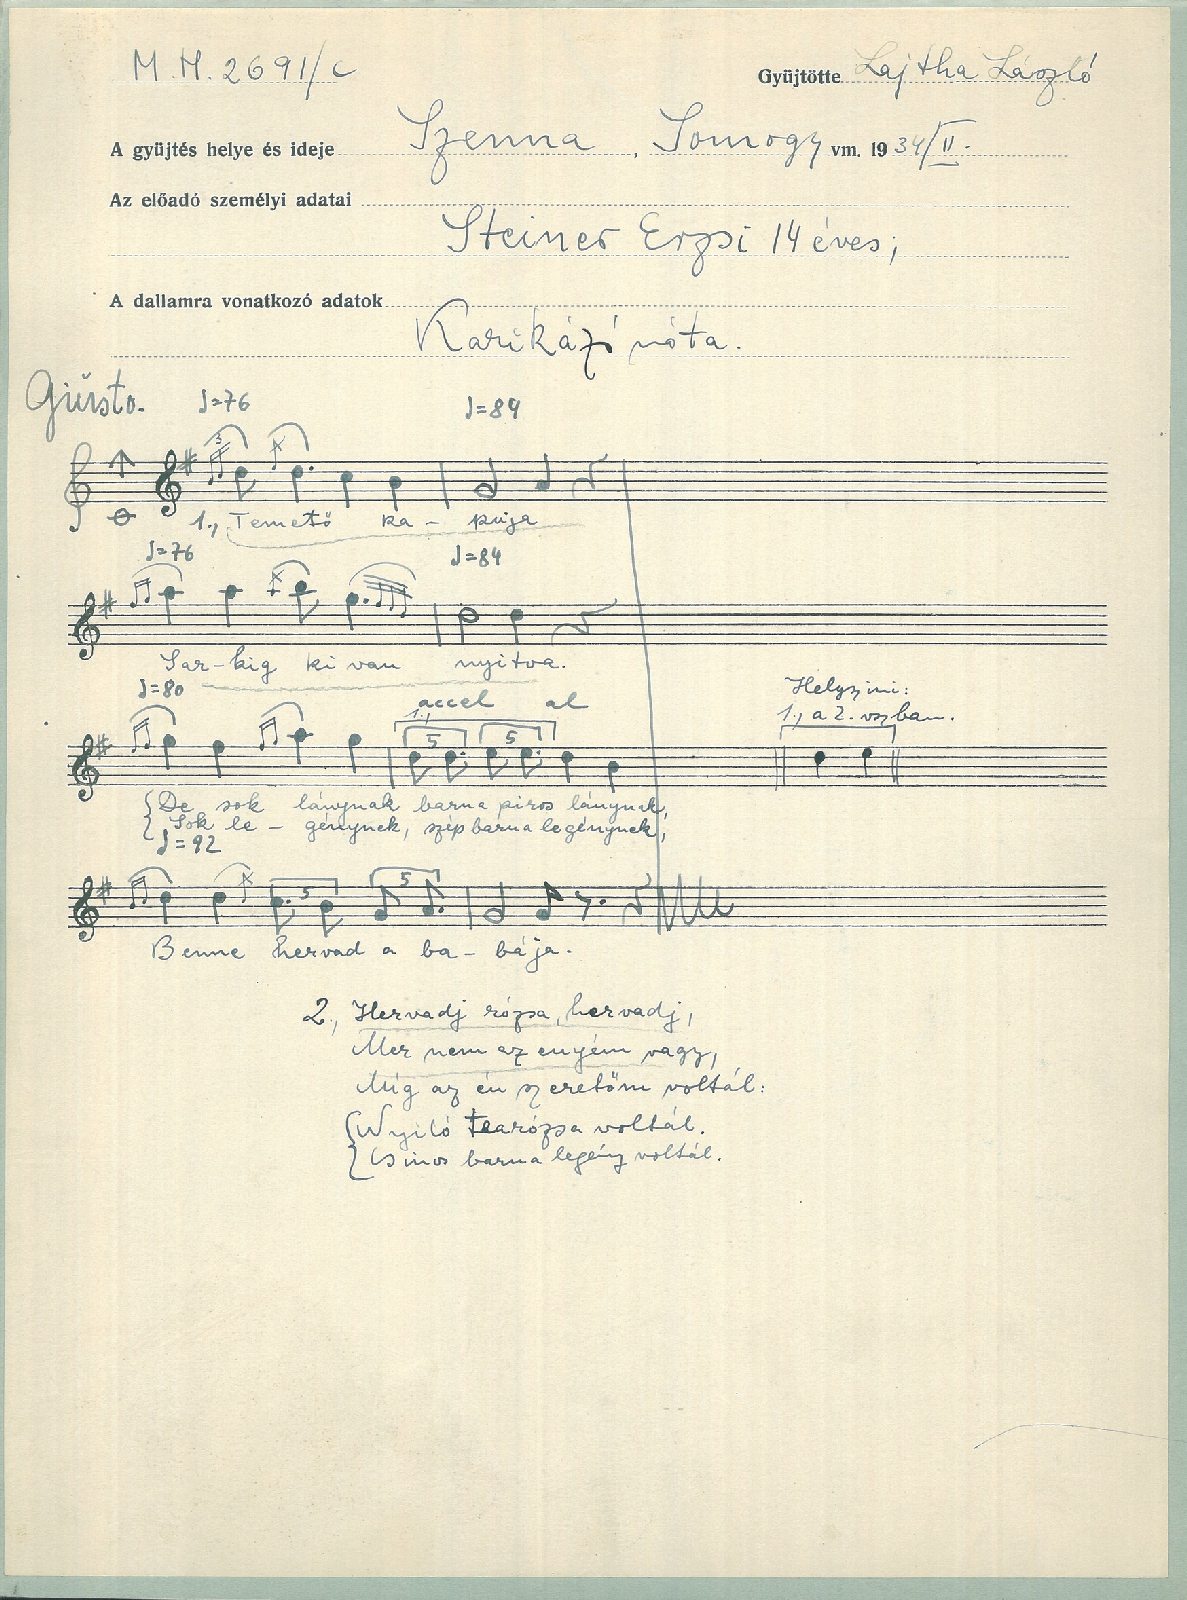 M.H. 2691/c
Gyüjtötte Lajtha László
A gyüjtés helye és ideje Szenna, Somogy vm. 1934/II.
Az előadó személyi adatai
Steiner Erzsi 14 éves;
A dallamra vonatkozó adatok
Karikázó nóta.
Giusto.
♩=76 ♩=84
3
1., Temető ka- puja
♩=76 ♩=84
Sar-kig ki van nyitva.
♩=80 accel al
Helyszini:
1., 1., a 2. vszban.
5 5
De sok lánynak barna piros lánynak,
Sok le- génynek, szép barna legénynek,
♩=92
5 5
Benne hervad a ba- bája.
2., Hervadj rózsa, hervadj,
Mer nem az enyém vagy,
Míg az én szeretőm voltál:
Nyiló tearózsa voltál.
Csinos barna legény voltál.